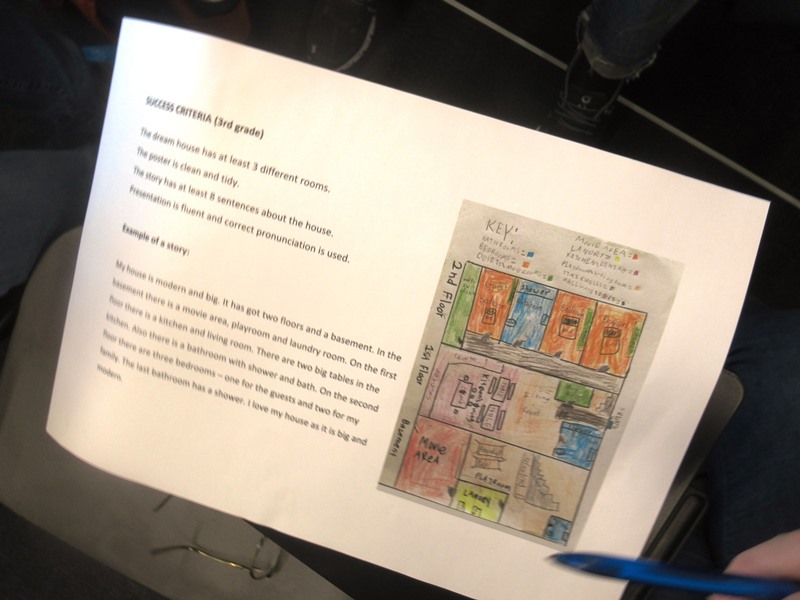 SUCCESS CRITERIA (3rd grade)
The dream house has at least 3 different rooms.
The poster is clean and tidy.
The story has at least 8 sentences about the house.
Presentation is fluent and correct pronunciation is used.
Example of a story:
My house is modern and big. It has got two floors and a basement. In the
basement there is a movie area, playroom and laundry room. On the first
floor there is a kitchen and living room. There are two big tables in the
kitchen. Also there is a bathroom with shower and bath. On the second
floor there are three bedrooms – one for the guests and two for my
family. The last bathroom has a shower. I love my house as it is big and
modern.
KEY:
MOVIE AREA=
2nd Floor
1st Floor
Basement
MOVIE
AREA
PLAYROOM